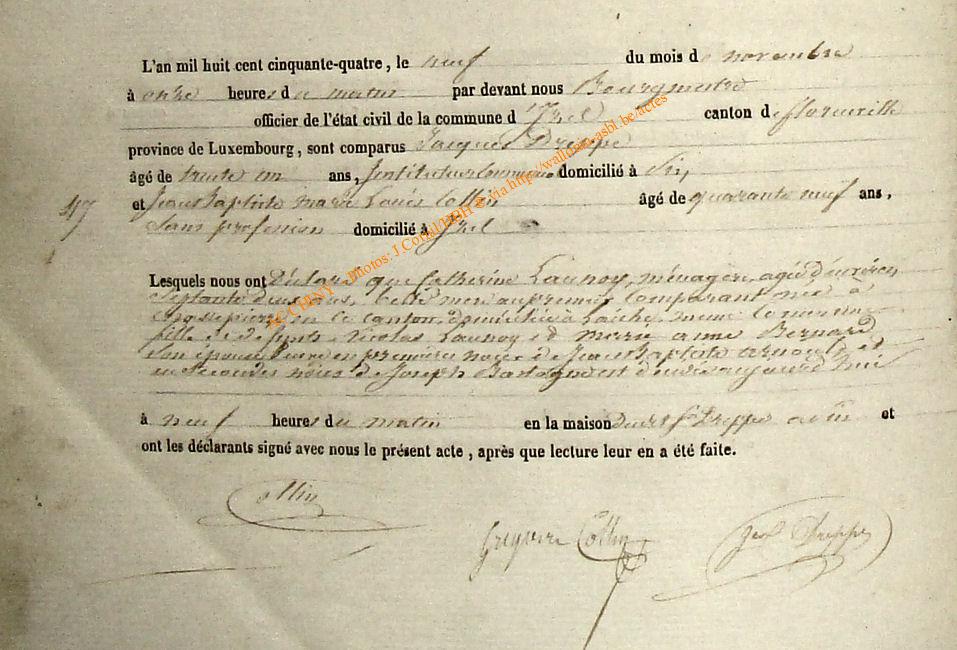 L'an mil huit cent cinquante-quatre, le neuf du mois d novembre
à onze heures du matin par devant nous Bourgmestre
officier de l'état civil de la commune d'Izel canton de florenville
province de Luxembourg, sont comparus Jacques Dreppe
âgé de trente un ans, Instituteur communal domicilié à
47 et Jean Baptiste marie Louis Collin âgé de quarante neuf ans,
sans profession domicilié à Izel
Lesquels nous ont Déclaré que Catherine Launoy, ménagère, agée d'environ
septante deux ans, mere au premier Comparant née à
en ce canton, domiciliée à même
fille de défunts Nicolas Launoy et Marie anne Bernard
son épouse, veuve en premières noces de Jean Baptiste arnould et
en secondes noces de Joseph est décédée aujourd'hui
à neuf heures du matin en la maison dudit Sr Dreppe et
ont les déclarants signé avec nous le présent acte, après que lecture leur en a été faite.
Collin
Grégoire Collin
Dreppe
ACCHINY - Photos: J.Collal/HGH - via http://wallonia-asbl.be/actes